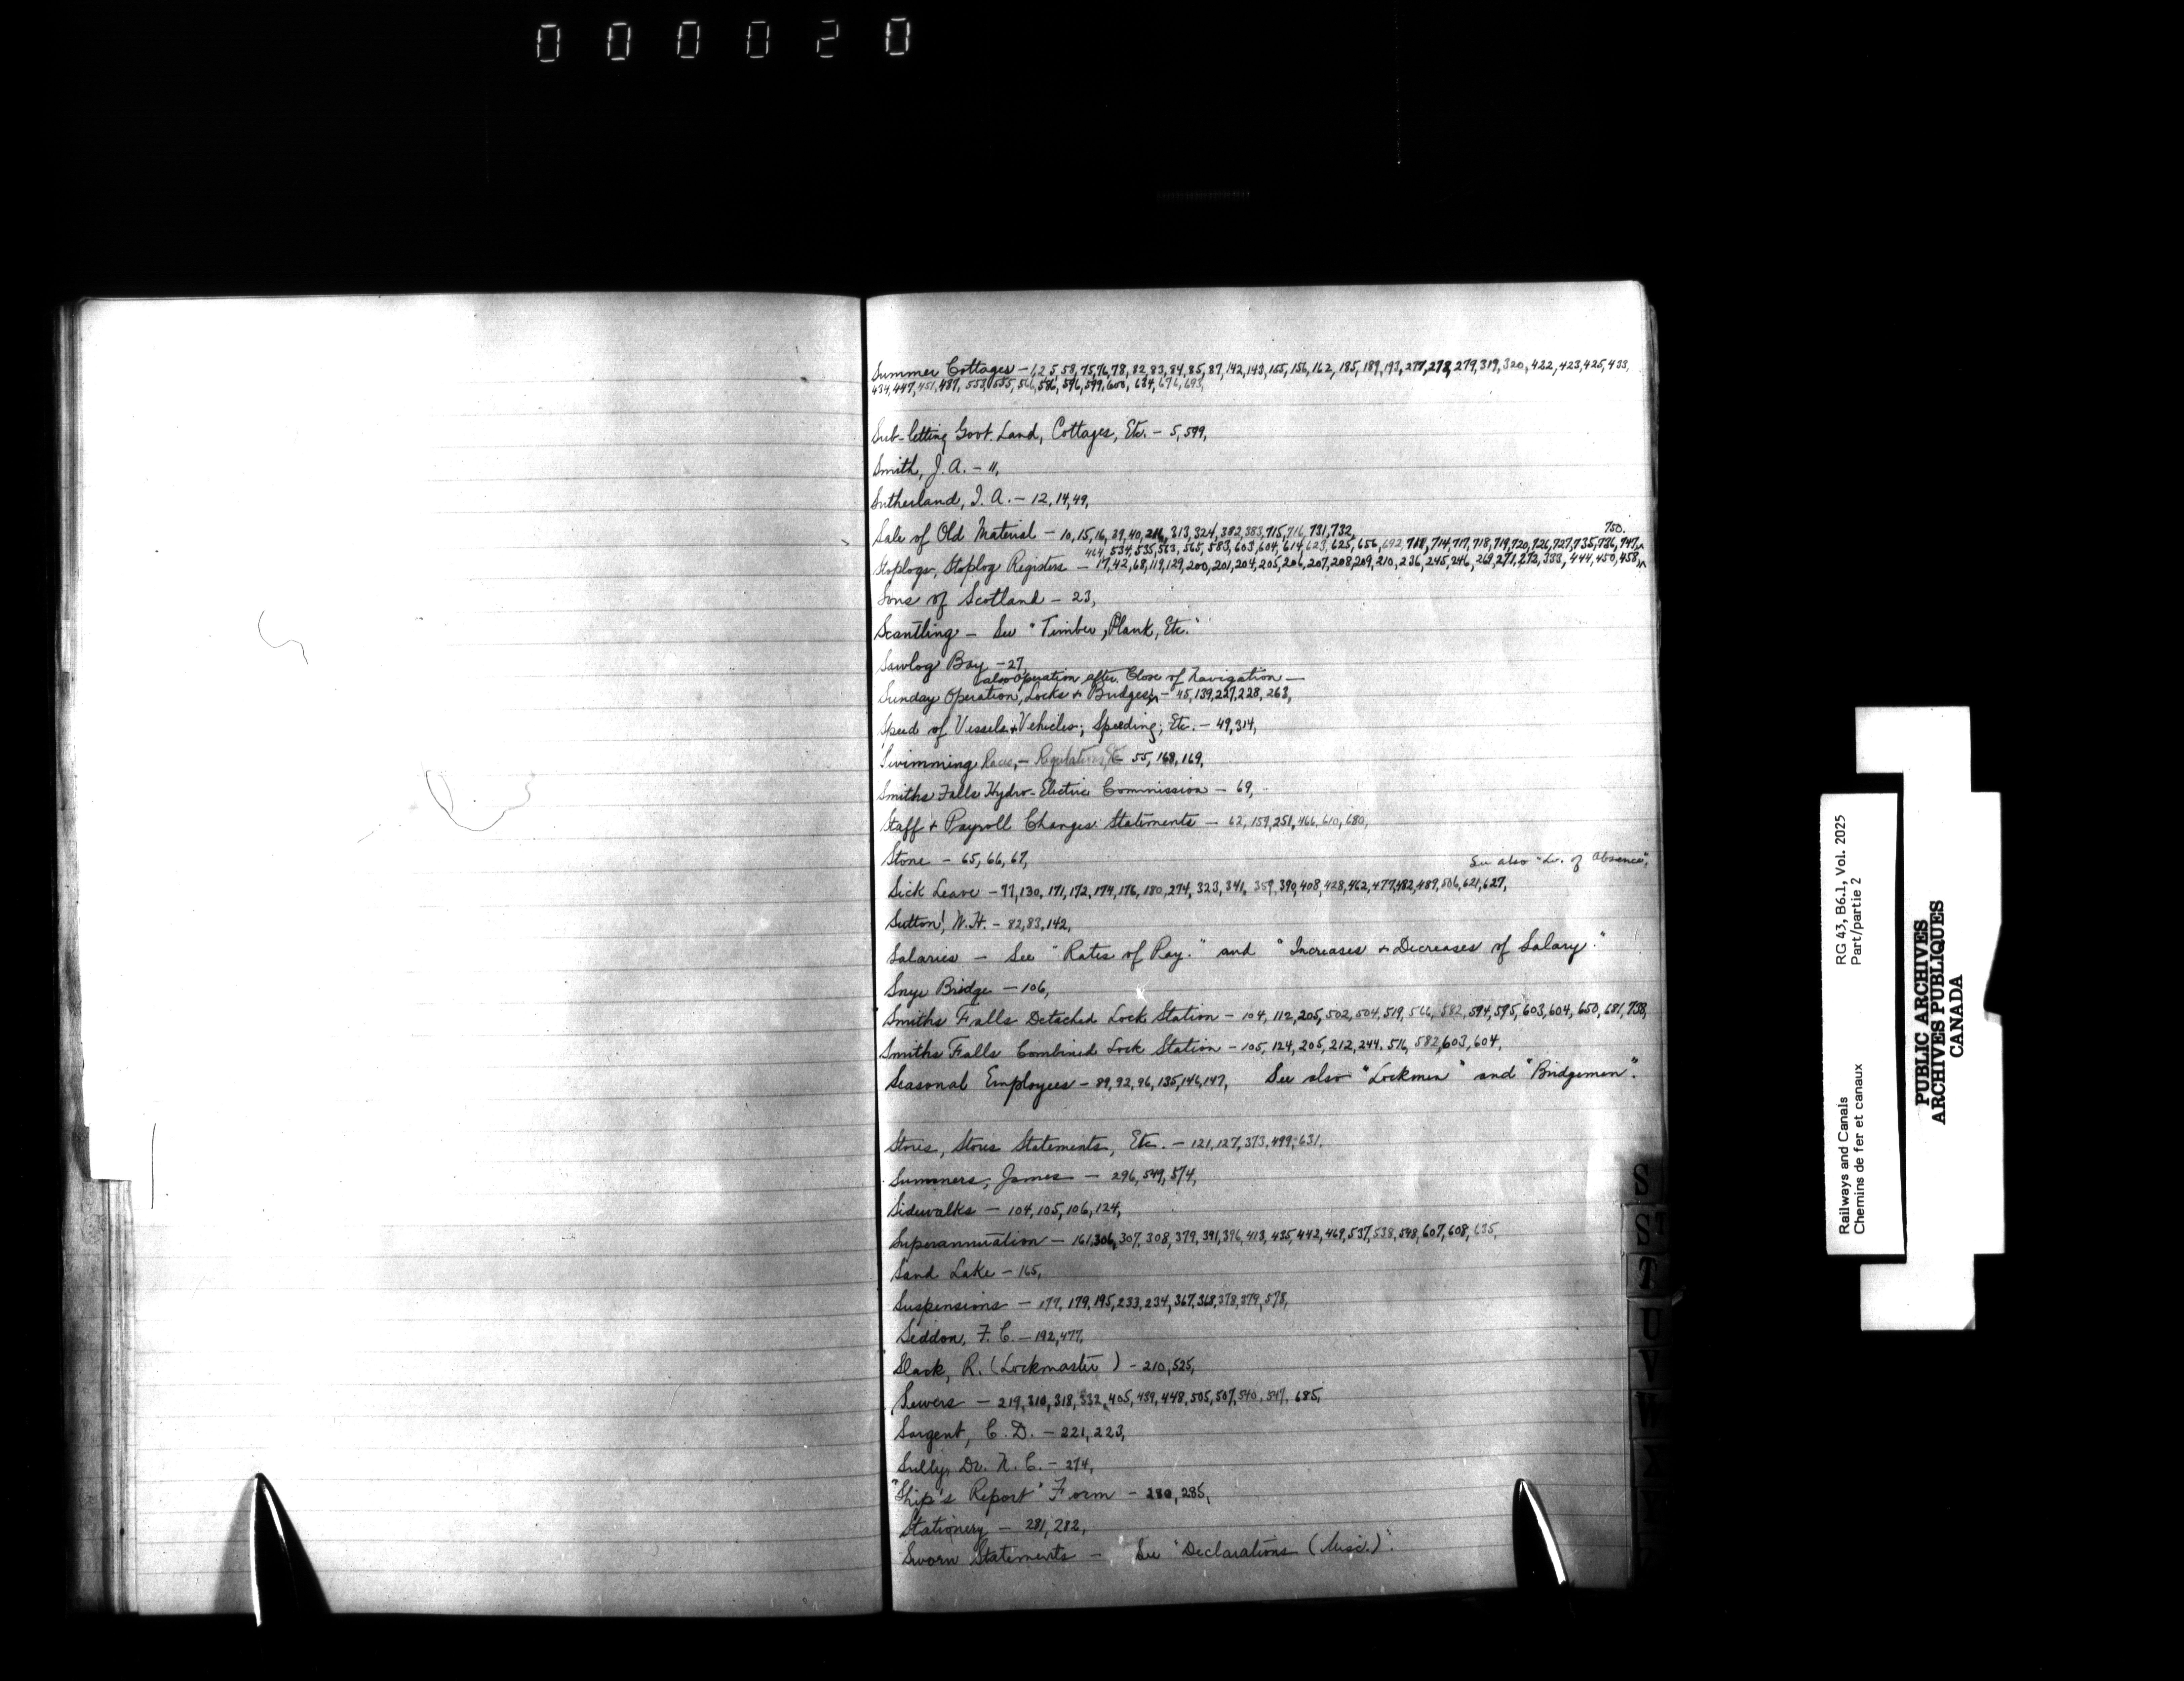 000020
Summer Cottages - 1,2,5,58,75,76,78,82,83,84,85,87,142,143,155,156,162,185,189,193,277,278,279,319,320,422,423,425,433,
434,447,451,487,553,555,566,586,596,599,600,634,676,693,
Sub-letting Govt. Land, Cottages, Etc. - 5,599,
Smith, J.A. - 11,
Sutherland, I.A. - 12,14,49,
Sale of Old Material - 10,15,16,39,40,216,313,324,382,383,715,716,731,732,
750.
464,534,535,563,565,583,603,604,614,623,625,656,692,711,714,717,718,719,720,726,727,735,736,747,
Stoplogs, Stoplog Registers - 17,42,68,119,129,200,201,204,205,206,207,208,209,210,236,245,246,269,271,272,333,444,450,458,
Sons of Scotland - 23,
Scantling - See "Timber, Plank, Etc."
Sawlog Bay - 27,
also Operation after Close of Navigation -
Sunday Operation, Locks & Bridges; - 45,139,227,228,263,
Speed of Vessels & Vehicles; Speeding; Etc. - 49,314,
Swimming Races, - Regulations, Etc 55,168,169,
Smiths Falls Hydro-Electric Commission - 69,
Staff & Payroll Changes Statements - 62,159,251,466,610,680,
Stone - 65,66,67,
See also "Lv. of Absence",
Sick Leave - 77,130,171,172,174,176,180,274,323,341,359,390,408,428,462,477,482,489,506,621,627,
Sutton, W.H. - 82,83,142,
Salaries - See "Rates of Pay." and "Increases & Decreases of Salary."
Snye Bridge - 106,
Smiths Falls Detached Lock Station - 104,112,205,502,504,519,566,582,594,595,603,604,650,681,738,
Smiths Falls Combined Lock Station - 105,124,205,212,244,516,582,603,604,
Seasonal Employees - 89,92,96,135,146,147, See also "Lockmen" and "Bridgemen".
Stores, Stores Statements, Etc. - 121,127,373,499,631,
Summers, James - 296,549,574,
Sidewalks - 104,105,106,124,
Superannuation - 161,306,307,308,379,391,396,413,435,442,469,537,538,548,607,608,635,
Sand Lake - 165,
Suspensions - 177,179,195,233,234,367,368,378,379,578,
Seddon, F.C. - 192,477,
Slack, R. (Lockmaster) - 210,525,
Sewers - 219,310,318,332,405,439,448,505,507,540,547,685,
Sargent, C.D. - 221,223,
Sully, Dr. N.C. - 274,
"Ship's Report" Form - 280,285,
Stationery - 281,282,
Sworn Statements - See "Declarations (Misc.)".
S
ST
T
U
V
W
RG 43, B6.1, Vol. 2025
Part/partie 2
Railways and Canals
Chemins de fer et canaux
PUBLIC ARCHIVES
ARCHIVES PUBLIQUES
CANADA